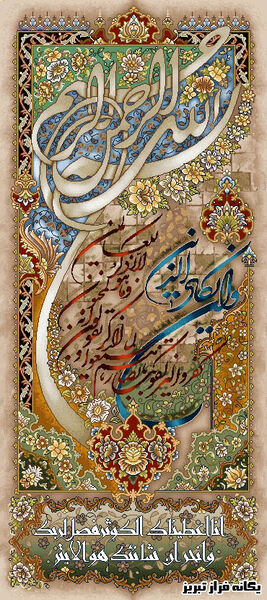 بسم الله الرحمن الرحیم
وان یکاد الذین
کفروا لیزلقونک بابصارهم
لما سمعوا الذکر و یقولون انه لمجنون
و ما هو الا ذکر للعالمین
انا اعطیناک الکوثر فصل لربک
وانحر ان شانئک هو الابتر
یگانه فراز تبریز